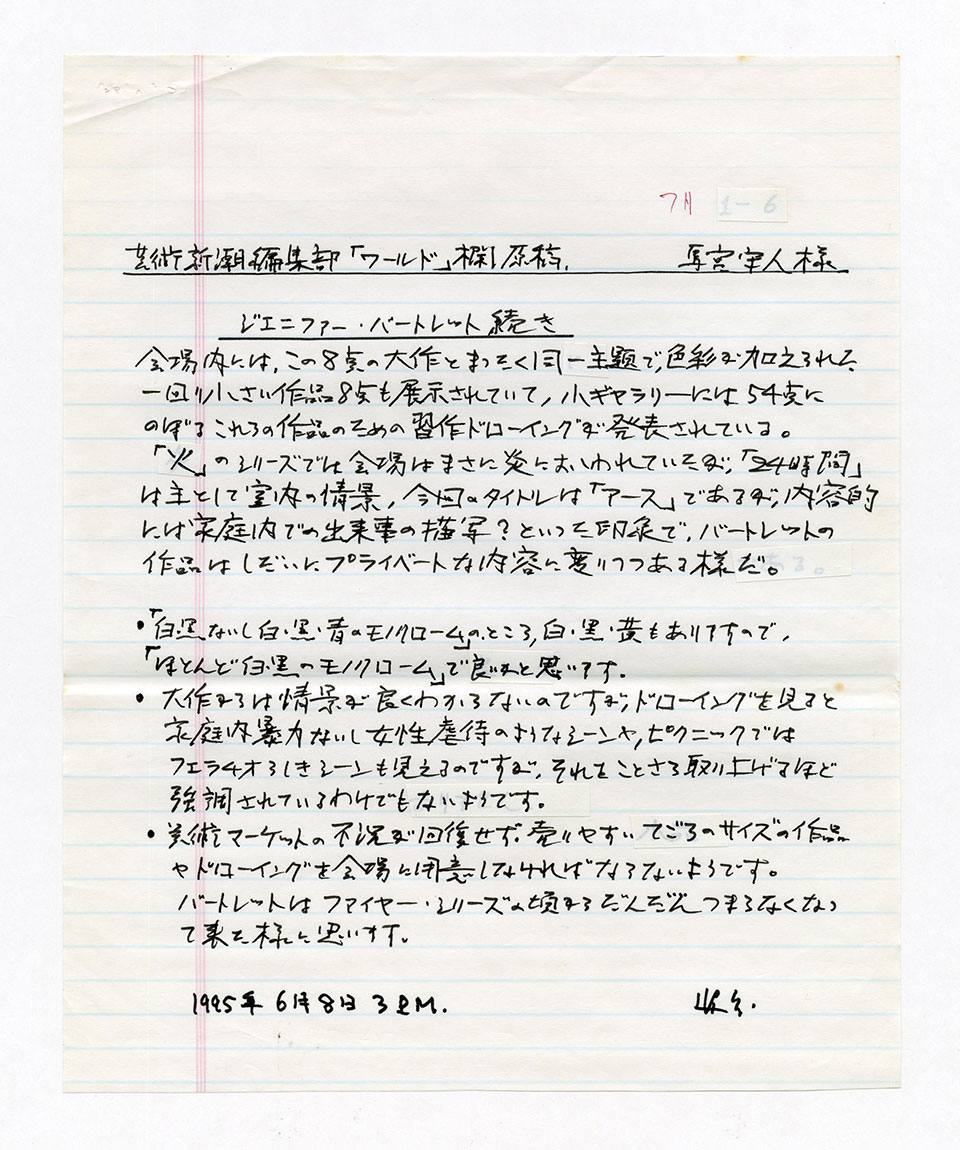 7月 1-6
芸術新潮編集部「ワールド」欄原稿. 宮人様
ジェニファー・バートレット続き
会場内には、この8点の大作とまったく同一主題で、色彩が加えられた、
一回り小さい作品8点も展示されていて、小ギャラリーには54点に
のぼるこれらの作品のための習作ドローイングが発表されている。
「火」のシリーズでは会場はまさに炎におおわれていたが、「24時間」
は主として室内の情景、今回のタイトルは「アース」であるが、内容的
には家庭内での出来事の描写？といった印象で、バートレットの
作品はしだいにプライベートな内容に変りつつある様だ。
•「白・黒ないし白・黒・青のモノクローム」のところ、白・黒・黄もありますので、
「ほとんど白・黒のモノクローム」で良いかと思います。
• 大作からは情景が良くわからないのですが、ドローイングを見ると
家庭内暴力ないし女性虐待のようなシーンや、ピクニックでは
フェラチオらしきシーンも見えるのですが、それをことさら取り上げるほど
強調されているわけでもないようです。
• 美術マーケットの不況が回復せず、売りやすいてごろのサイズの作品
やドローイングを会場に用意しなければならないようです。
バートレットはファイヤー・シリーズの頃からだんだんつまらなくなっ
て来た様に思います。
1995年6月8日 3 P.M.